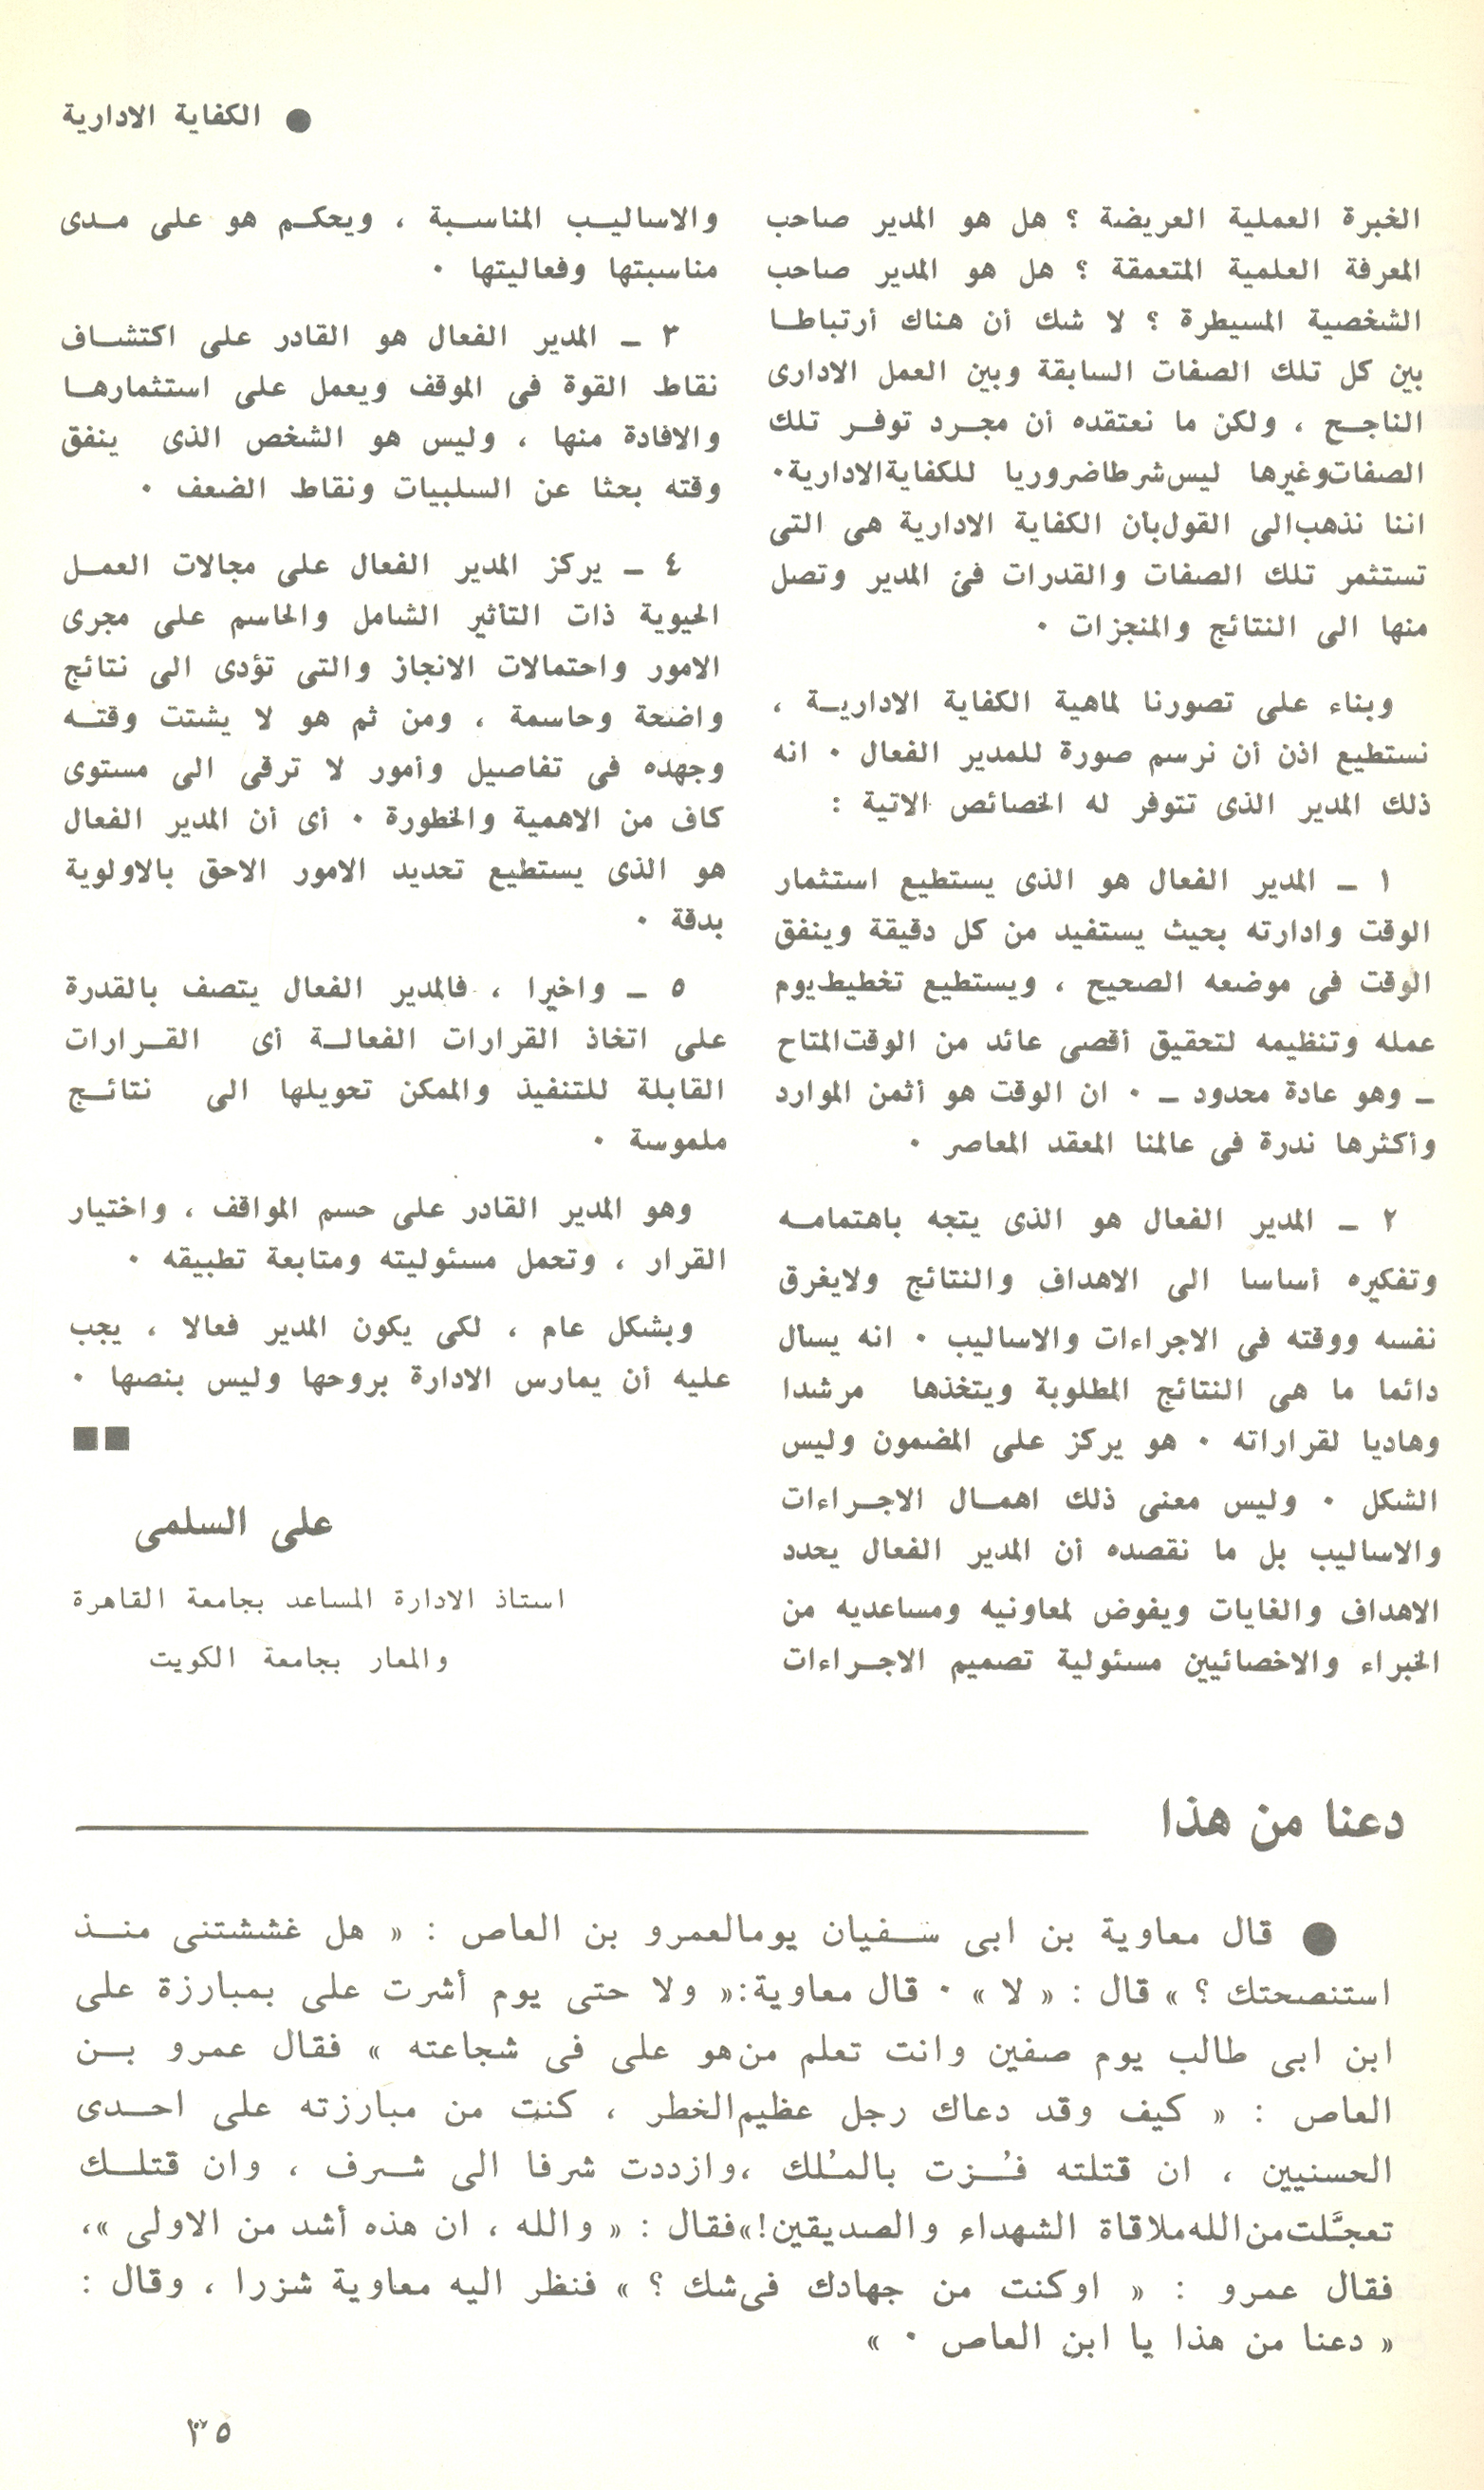 ● الكفاية الادارية
الخبرة العملية العريضة ؟ هل هو المدير صاحب
المعرفة العلمية المتعمقة ؟ هل هو المدير صاحب
الشخصية المسيطرة ؟ لا شك أن هناك أرتباطا
بين كل تلك الصفات السابقة وبين العمل الادارى
الناجح ، ولكن ما نعتقده أن مجرد توفر تلك
الصفات وغيرها ليس شرطا ضروريا للكفاية الادارية ٠
اننا نذهب الى القول بأن الكفاية الادارية هى التى
تستثمر تلك الصفات والقدرات فى المدير وتصل
منها الى النتائج والمنجزات ٠
وبناء على تصورنا لماهية الكفاية الادارية ،
نستطيع اذن أن نرسم صورة للمدير الفعال ٠ انه
ذلك المدير الذى تتوفر له الخصائص الاتية :
١ ـ المدير الفعال هو الذى يستطيع استثمار
الوقت وادارته بحيث يستفيد من كل دقيقة وينفق
الوقت فى موضعه الصحيح ، ويستطيع تخطيط يوم
عمله وتنظيمه لتحقيق أقصى عائد من الوقت المتاح
ـ وهو عادة محدود ـ ٠ ان الوقت هو أثمن الموارد
وأكثرها ندرة فى عالمنا المعقد المعاصر ٠
٢ ـ المدير الفعال هو الذى يتجه باهتمامه
وتفكيره أساسا الى الاهداف والنتائج ولايغرق
نفسه ووقته فى الاجراءات والاساليب ٠ انه يسأل
دائما ما هى النتائج المطلوبة ويتخذها مرشدا
وهاديا لقراراته ٠ هو يركز على المضمون وليس
الشكل ٠ وليس معنى ذلك اهمال الاجراءات
والاساليب بل ما نقصده أن المدير الفعال يحدد
الاهداف والغايات ويفوض لمعاونيه ومساعديه من
الخبراء والاخصائيين مسئولية تصميم الاجراءات
والاساليب المناسبة ، ويحكم هو على مدى
مناسبتها وفعاليتها ٠
٣ ـ المدير الفعال هو القادر على اكتشاف
نقاط القوة فى الموقف ويعمل على استثمارها
والافادة منها ، وليس هو الشخص الذى ينفق
وقته بحثا عن السلبيات ونقاط الضعف ٠
٤ ـ يركز المدير الفعال على مجالات العمل
الحيوية ذات التأثير الشامل والحاسم على مجرى
الامور واحتمالات الانجاز والتى تؤدى الى نتائج
واضحة وحاسمة ، ومن ثم هو لا يشتت وقته
وجهده فى تفاصيل وأمور لا ترقى الى مستوى
كاف من الاهمية والخطورة ٠ أى أن المدير الفعال
هو الذى يستطيع تحديد الامور الاحق بالاولوية
بدقة ٠
٥ ـ واخيرا ، فالمدير الفعال يتصف بالقدرة
على اتخاذ القرارات الفعالة أى القرارات
القابلة للتنفيذ والممكن تحويلها الى نتائج
ملموسة ٠
وهو المدير القادر على حسم المواقف ، واختيار
القرار ، وتحمل مسئوليته ومتابعة تطبيقه ٠
وبشكل عام ، لكى يكون المدير فعالا ، يجب
عليه أن يمارس الادارة بروحها وليس بنصها ٠
على السلمى
استاذ الادارة المساعد بجامعة القاهرة
والمعار بجامعة الكويت
دعنا من هذا
● قال معاوية بن ابى سفيان يوما لعمرو بن العاص : « هل غششتنى منذ
استنصحتك ؟ » قال : « لا » ٠ قال معاوية : « ولا حتى يوم أشرت على بمبارزة على
ابن ابى طالب يوم صفين وانت تعلم من هو على فى شجاعته » فقال عمرو بن
العاص : « كيف وقد دعاك رجل عظيم الخطر ، كنت من مبارزته على احدى
الحسنيين ، ان قتلته فُزت بالمُلك ، وازددت شرفا الى شرف ، وان قتلك
تعجَّلت من الله ملاقاة الشهداء والصديقين ! » فقال : « والله ، ان هذه أشد من الاولى » ،
فقال عمرو : « اوكنت من جهادك فى شك ؟ » فنظر اليه معاوية شزرا ، وقال :
« دعنا من هذا يا ابن العاص ٠ »
٣٥